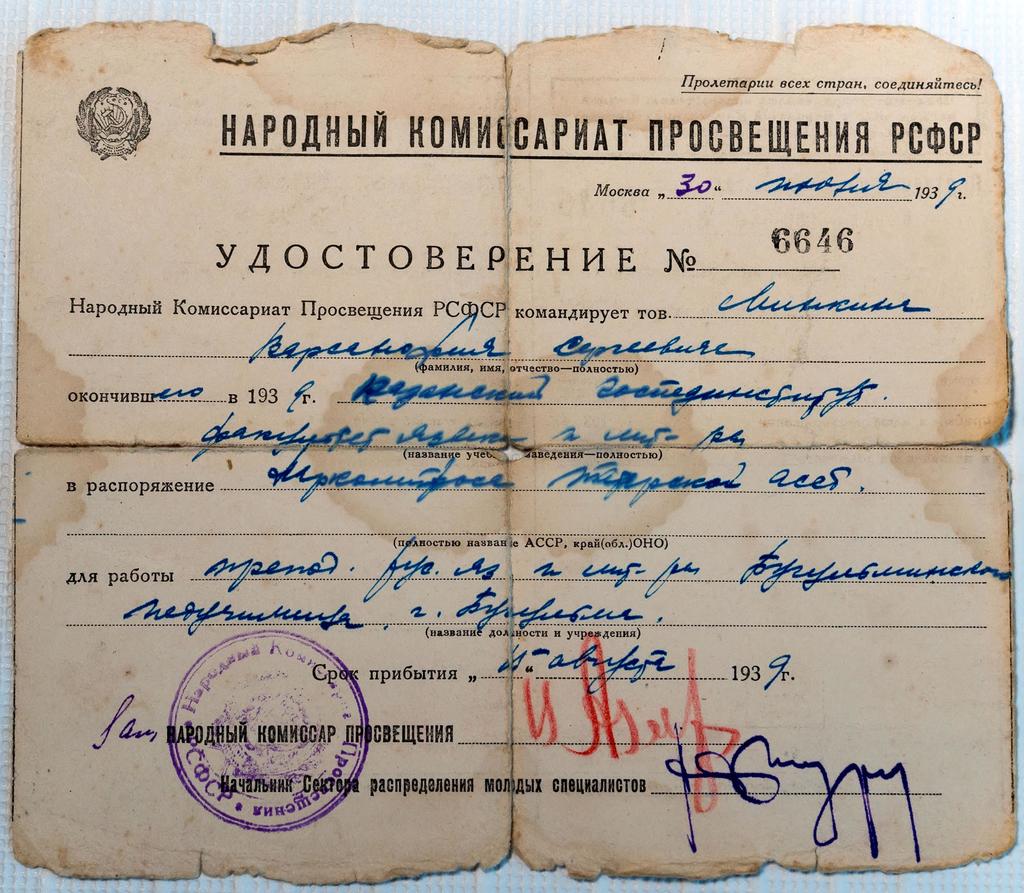 Пролетарии всех стран, соединяйтесь!
НАРОДНЫЙ КОМИССАРИАТ ПРОСВЕЩЕНИЯ РСФСР
Москва „30“ июня 1939г.
УДОСТОВЕРЕНИЕ № 6646
Народный Комиссариат Просвещения РСФСР командирует тов. Минкина
Сергеевича
(фамилия, имя, отчество—полностью)
окончившего в 1939г. Казанский госпединститут.
факультет языка и лит-ры
(название учебного заведения—полностью)
в распоряжение Наркомпроса Татарской АССР.
(полностью название АССР, край(обл.)ОНО)
для работы препод. рус. яз и лит-ры Бугульминского
педучилища, г. Бугульма.
(название должности и учреждения)
Срок прибытия „15“ августа 1939г.
Зам. НАРОДНЫЙ КОМИССАР ПРОСВЕЩЕНИЯ
Начальник Сектора распределения молодых специалистов
Народный Комиссариат Просвещения РСФСР